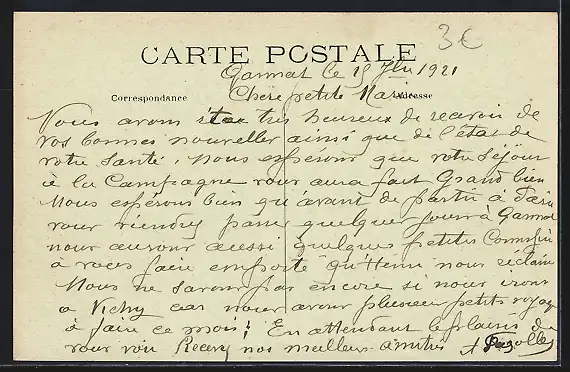 3€
CARTE POSTALE
Gannat le 15 1921
Correspondance
Adresse
Chère petite
Vous avons été très heureux de recevoir de
vos bonnes nouvelles ainsi que de l'état de
votre santé. Nous espérons que votre séjour
à la Campagne vous aura fait Grand bien
Nous espérons bien qu'avant de partir à
vous viendrez passer quelque jours à Gannat
nous aurons aussi quelques petites
à vous faire emporté qu'Henri nous réclame
Nous ne savons pas encore si nous irons
a Vichy car nous avons plusieurs petits voyage
à faire ce mois; En attendant le plaisir de
vous voir Recevez nos meilleurs amitiés